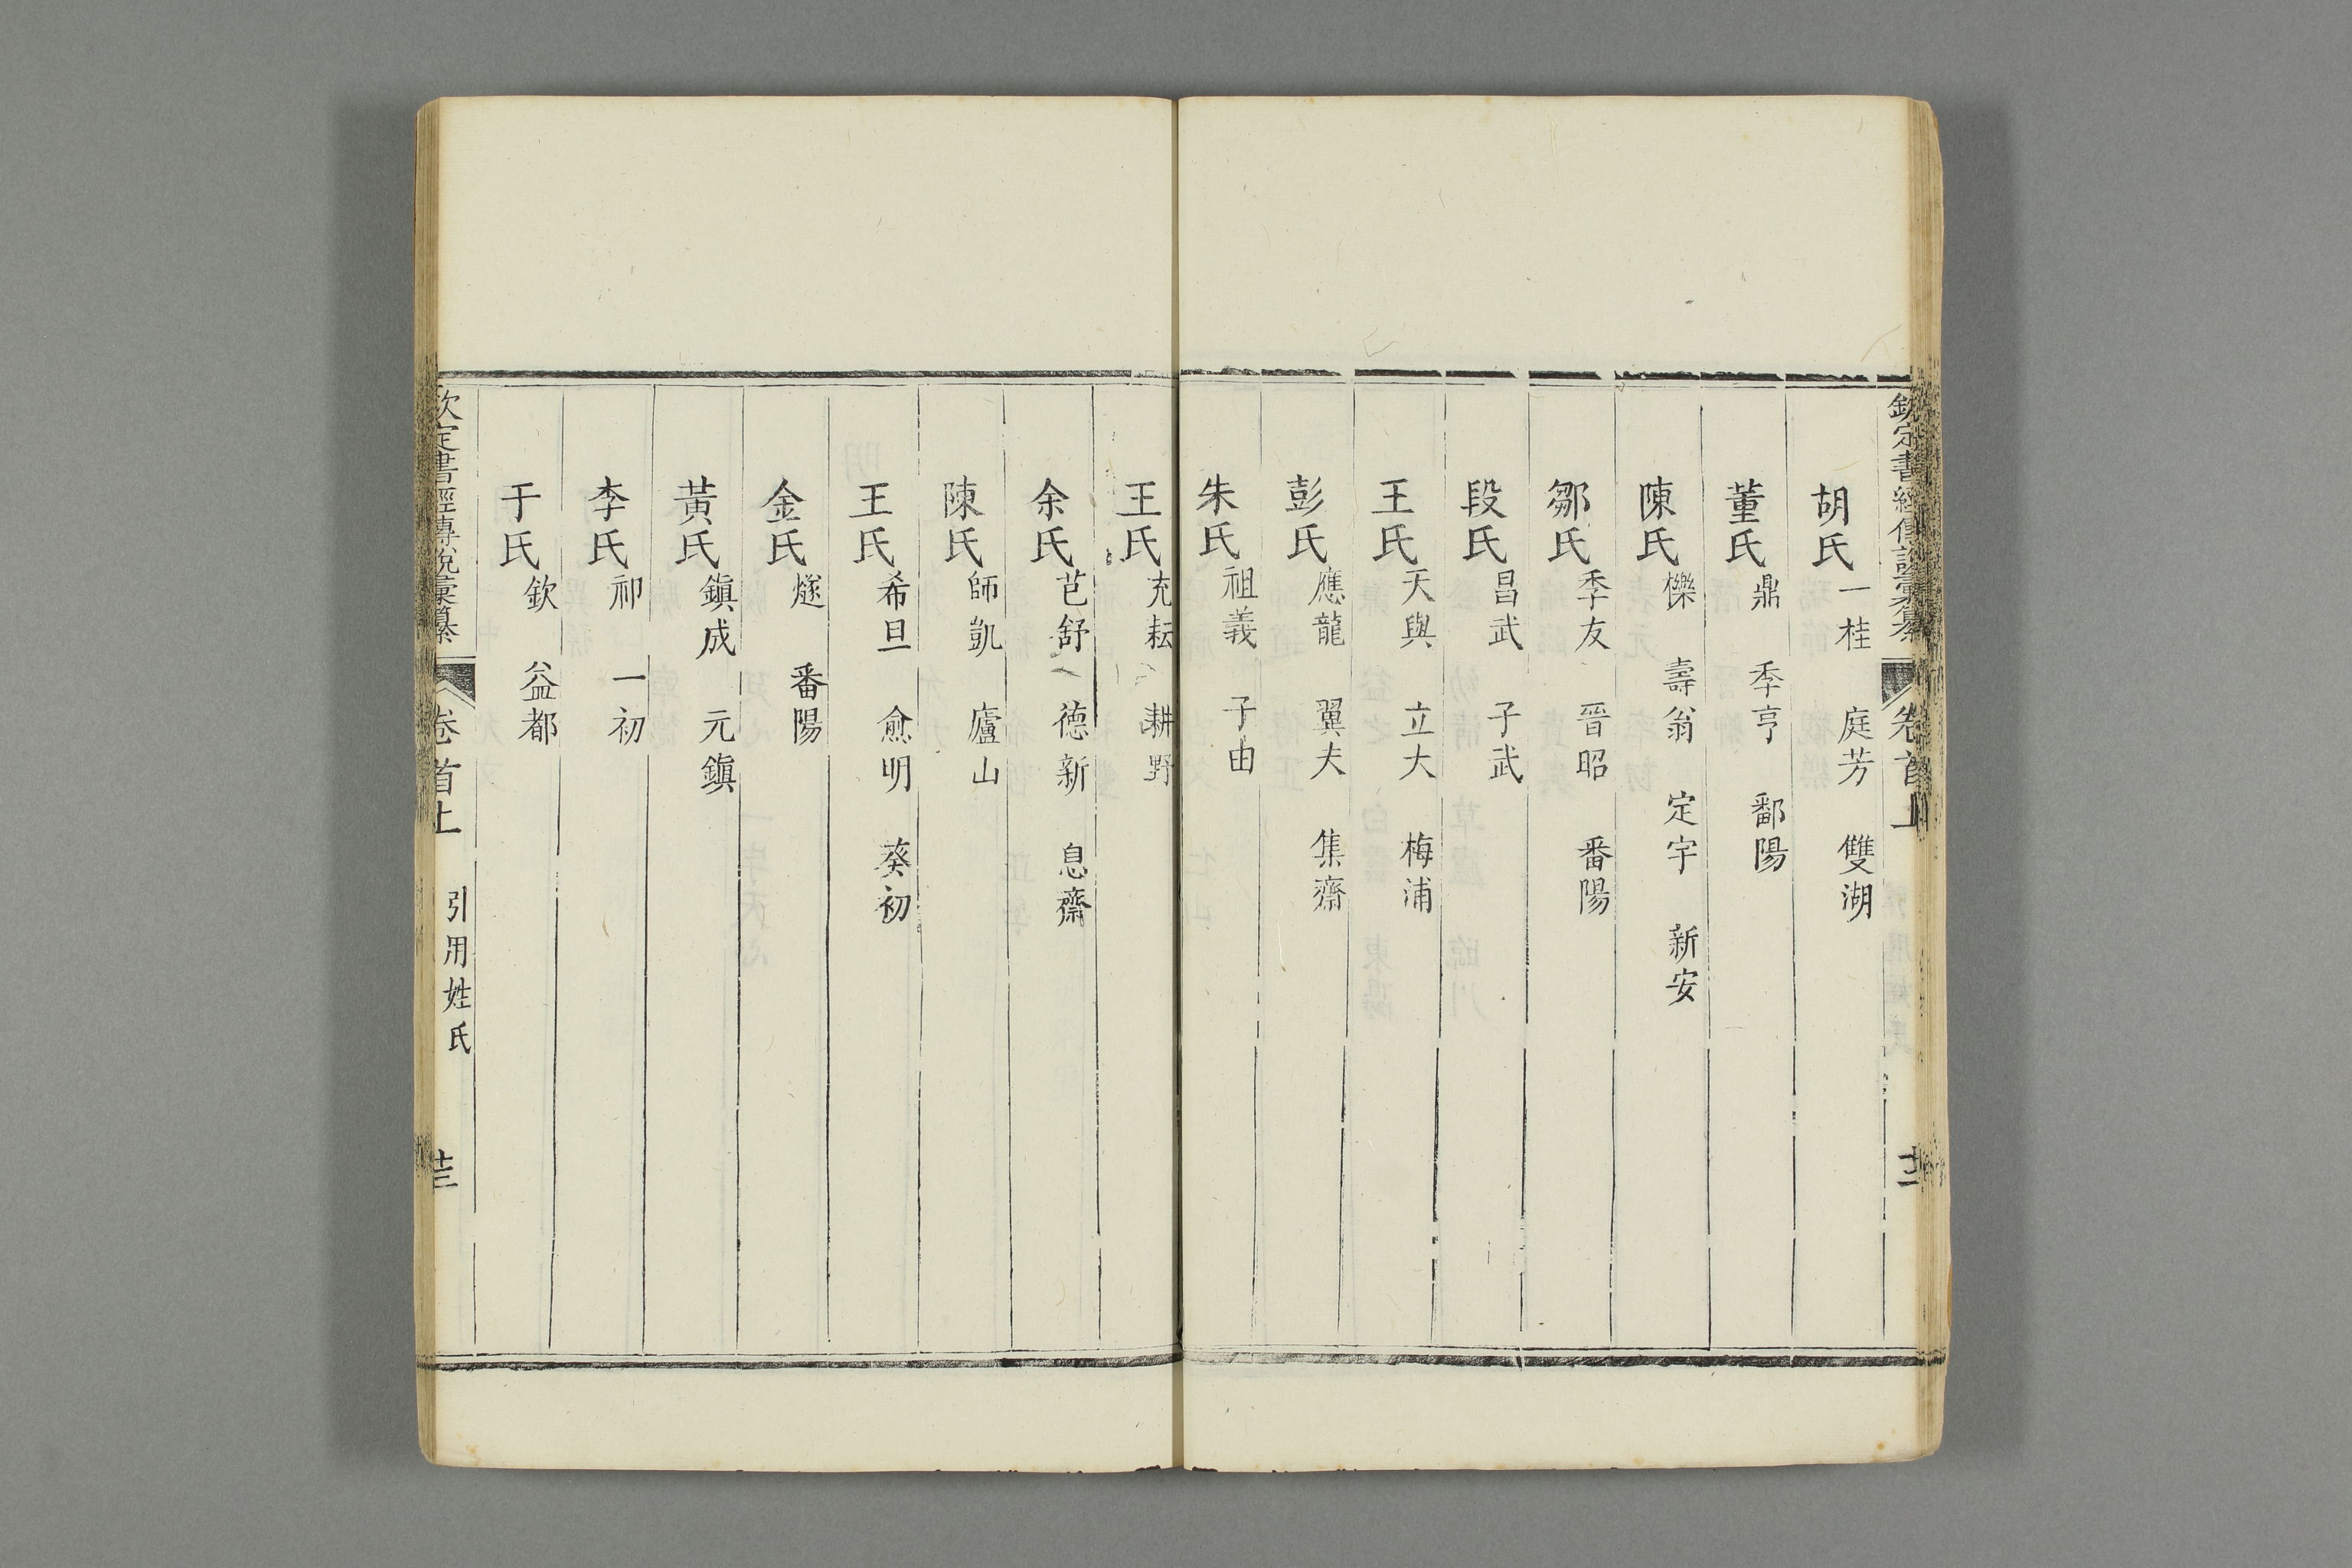 欽定書經傳說彙纂 卷首上
胡氏 一桂 庭芳 雙湖
董氏 鼎 季亨 鄱陽
陳氏 櫟 壽翁 定宇 新安
鄒氏 季友 晉昭 番陽
段氏 昌武 子武
王氏 天與 立大 梅浦
彭氏 應龍 翼夫 集齋
朱氏 祖義 子由
王氏 充耘 耕野
余氏 芑舒 德新 息齋
陳氏 師凱 廬山
王氏 希旦 愈明 葵初
金氏 燧 番陽
黃氏 鎭成 元鎭
李氏 祁 一初
于氏 欽 益都
欽定書經傳說彙纂 卷首上 引用姓氏